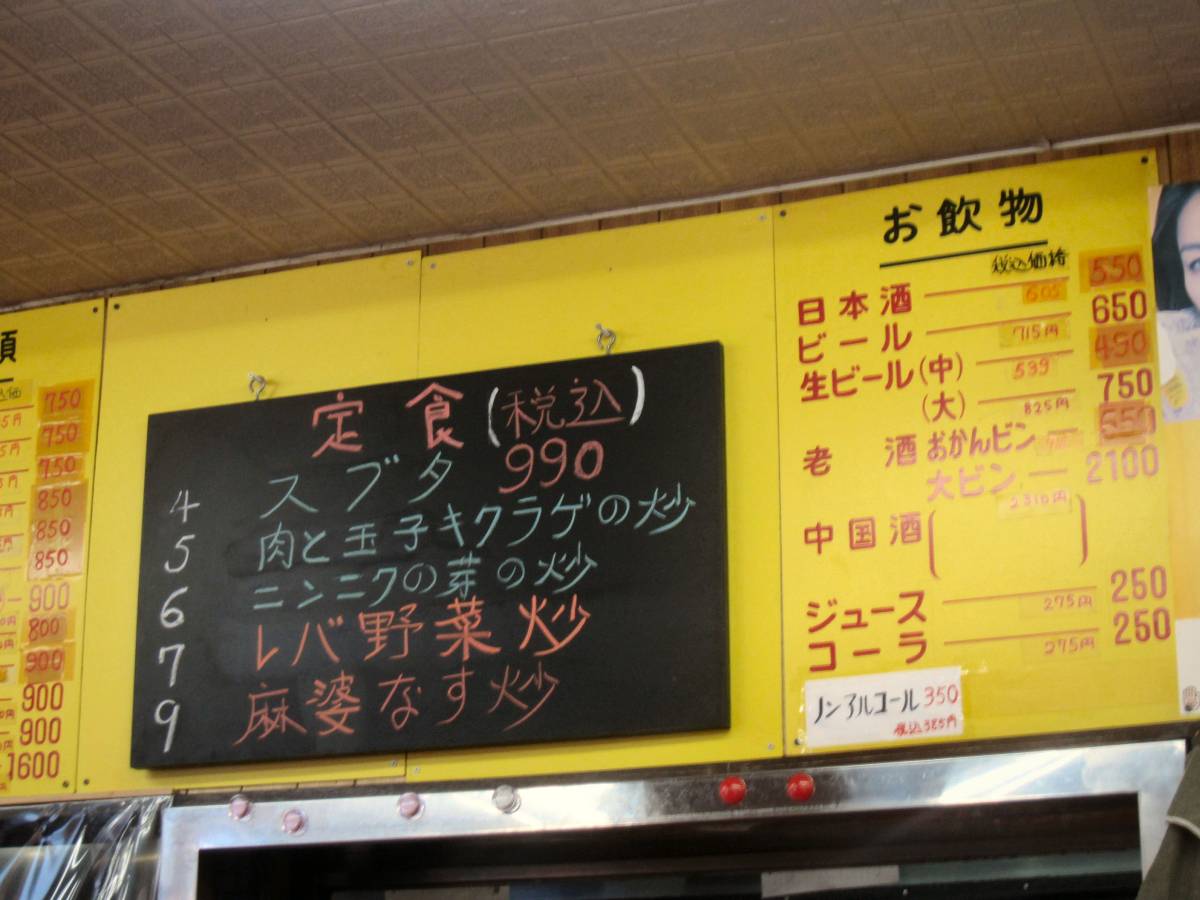 類
750
750
750
850
850
850
900
800
900
900
900
1600
定食(税込)
990
4 スブタ
5 肉と玉子キクラゲの炒
6 ニンニクの芽の炒
7 レバ野菜炒
9 麻婆なす炒
お飲物
税込価格
日本酒 605 550
ビール 715円 650
生ビール(中) 539 490
(大) 825円 750
老酒 おかんビン 550
大ビン 2310円 2100
中国酒( )
ジュース 275円 250
コーラ 275円 250
ノンアルコール 350
税込385円